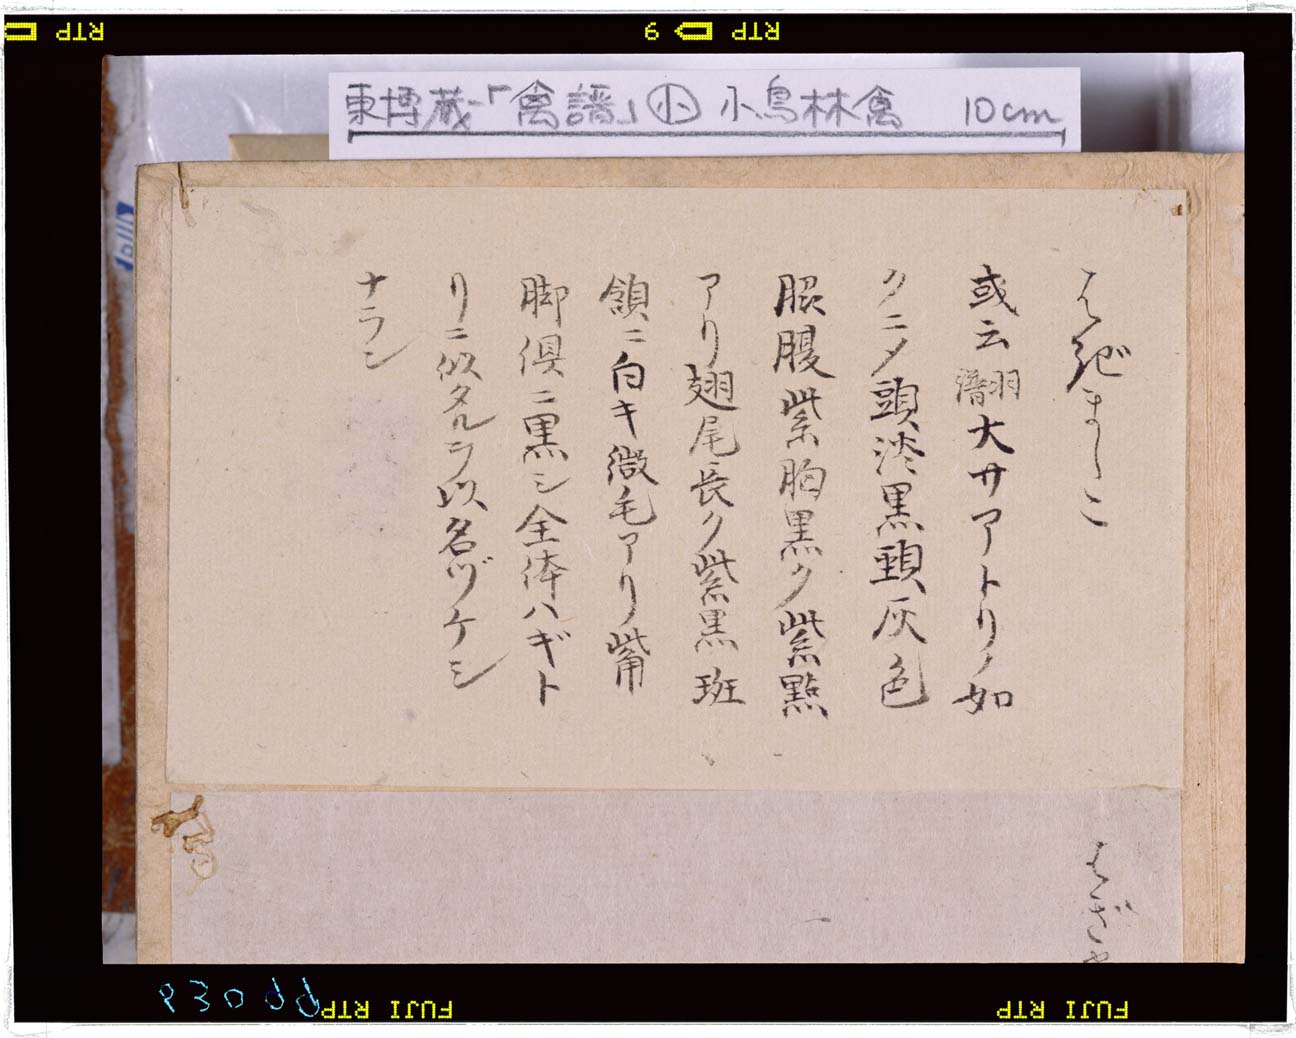 RTP
9
RTP
東博蔵「禽譜」小 小鳥林禽 10cm
はぎましこ
或云 大サアトリノ如
クニメ頭淡黒頸灰色
服腹紫胸黒ク紫點
アリ翅尾長ク紫黒斑
頷ニ白キ微毛アリ觜
脚倶ニ黒シ全体ハギト
リニ似タルヲ以名ヅケシ
ナラン
はぎ
FUJI RTP
FUJI RTP